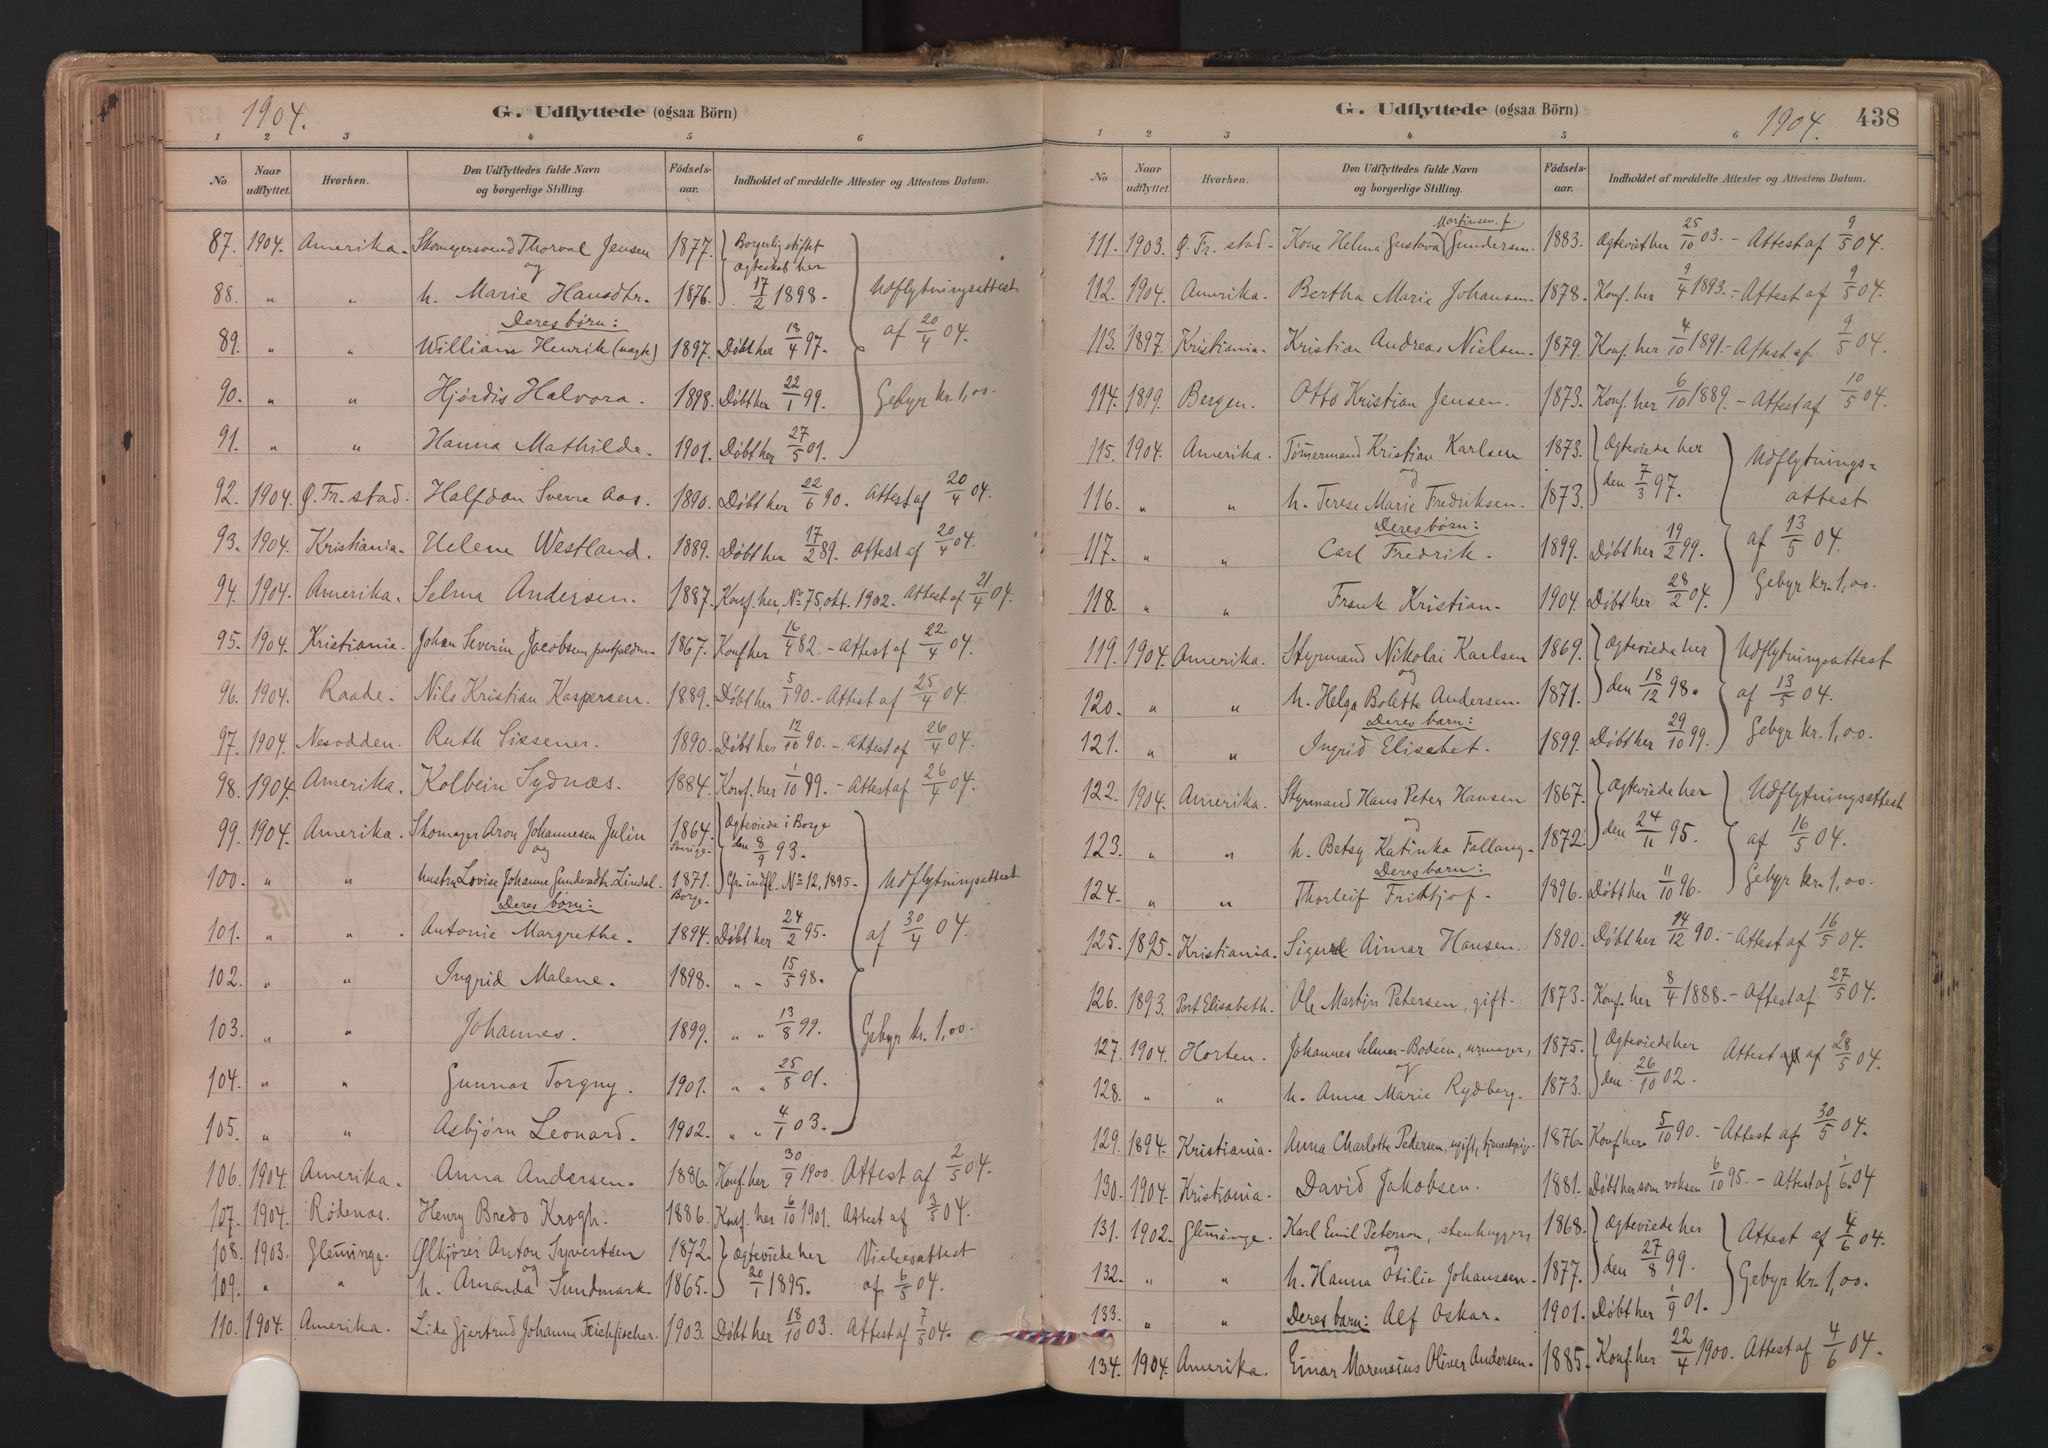 1904.
G. Udflyttede (ogsaa Börn)
1 2 3 4 5 6
No
Naar udflyttet.
Hvorhen.
Den Udflyttedes fulde Navn og borgerlige Stilling.
Födselsaar.
Indholdet af meddelte Attester og Attestens Datum.
87. 1904. Amerika. Skomagersvend Thorval Jensen 1877. Borgerlig stiftet
og Ægteskab her
88. " " h. Marie Hansdtr. 1876. 17/2 1898. Udflytningsattest
Deres børn:
89. " " William Henrik (uægte) 1897. Døbt her 18/4 97. af 20/4 04.
90. " " Hjørdis Halvora. 1898. Døbt her 22/1 99. Gebyr kr. 1,00.
91. " " Hanna Mathilde. 1901. Døbt her 27/5 01.
92. 1904. Ø. Fr.stad. Halfdan Sverre Aas. 1890. Døbt her 22/6 90. Attest af 20/4 04.
93. 1904. Kristiania. Helene Westland. 1889. Døbt her 17/2 89. Attest af 20/4 04.
94. 1904. Amerika. Selma Andersen. 1887. Konf. her, No 75, okt. 1902. Attest af 21/4 04.
95. 1904. Kristiania. Johan Severin Jacobsen 1867. Konf her 16/4 82. - Attest af 22/4 04.
96. 1904. Raade. Nils Kristian Kaspersen. 1889. Døbt her 5/1 90. - Attest af 25/4 04.
97. 1904. Nesodden. Ruth Sissener. 1890. Døbt her 12/10 90. - Attest af 26/4 04.
98. 1904. Amerika. Kolbein Sydnæs. 1884. Konf. her 1/10 99. - Attest af 26/4 04.
99. 1904. Amerika. Skomager Aron Johannesen Julin 1864. Ægteviede i Borge
og Sverige. den 8/9 93.
100. " " hustru Lovise Johanne Gundersdtr. Lindal. 1871. Cfr. indfl. No 12, 1895. Udflytningsattest
Deres børn: Borge.
101. " " Antonie Margrethe. 1894. Døbt her 24/2 95. af 30/4 04.
102. " " Ingrid Malene. 1898. " " 15/5 98.
103. " " Johannes. 1899. " " 13/8 99. Gebyr kr. 1,00.
104. " " Gunnar Torgny. 1901. " " 25/8 01.
105. " " Asbjørn Leonard. 1902. " " 4/1 03.
106. 1904. Amerika. Anna Andersen. 1886. Konf. her 30/9 1900. Attest af 2/5 04.
107. 1904. Rødenæs. Henry Bredo Krogh. 1886. Konf. her 6/10 1901. Attest af 3/5 04.
108. 1903. Glemminge. Ølbjører Anton Syvertsen 1872. Ægteviede her Vielsesattest
og
109. " " h. Amanda Sundmark 1865. 20/1 1895. af 6/5 04.
110. 1904. Amerika. Lida Gjertrud Johanna Feichfischer. 1903. Døbt her 18/10 03. Attest af 7/5 04.
G. Udflyttede (ogsaa Börn)
1904.
438
1 2 3 4 5 6
No
Naar udflyttet.
Hvorhen.
Den Udflyttedes fulde Navn og borgerlige Stilling.
Födselsaar.
Indholdet af meddelte Attester og Attestens Datum.
Martinsen f.
111. 1903. Ø. Fr. stad. Kone Helma Gustava Gundersen. 1883. Ægteviet her 25/10 03. - Attest af 9/5 04.
112. 1904. Amerika. Bertha Marie Johansen. 1878. Konf. her 9/4 1893. - Attest af 9/5 04.
113. 1897. Kristiania. Kristian Andreas Nielsen. 1879. Konf. her 4/10 1891. - Attest af 9/5 04.
114. 1899. Bergen. Otto Kristian Jensen. 1873. Konf. her 6/10 1889. - Attest af 10/5 04.
115. 1904. Amerika. Tømermand Kristian Karlsen 1873. Ægteviede her Udflytnings=
og
116. " " h. Terese Marie Fredriksen. 1873. den 7/3 97. attest
Deres børn:
117. " " Carl Fredrik. 1899. Døbt her 19/2 99. af 13/5 04.
118. " " Frank Kristian. 1904. Døbt her 28/2 04. Gebyr kr. 1,00.
119. 1904. Amerika. Styrmand Nikolai Karlsen 1869. Ægteviede her Udflytningsattest
og
120. " " h. Helga Bolette Andersen. 1871. den 18/12 98. af 13/5 04.
Deres barn:
121. " " Ingrid Elisabet. 1899. Døbt her 29/10 99. Gebyr kr. 1,00.
122. 1904. Amerika. Styrmand Hans Peter Hansen 1867. Ægteviede her Udflytningsattest
og
123. " " h. Betsy Katinka Fallang. 1872. den 24/11 95. af 16/5 04.
Deres barn:
124. " " Thorleif Fritkjof. 1896. Døbt her 11/10 96. Gebyr kr. 1,00.
125. 1895. Kristiania. Sigurd Aimar Hansen. 1890. Døbt her 14/12 90. - Attest af 16/5 04.
126. 1893. Port Elisabeth. Ole Martin Petersen, gift. 1873. Konf. her 8/4 1888. - Attest af 27/5 04.
127. 1904. Horten. Johannes Selmer-Bodéen, urmager, 1875. Ægteviede her Attest af 28/5 04.
og
128. " " h. Anna Marie Rydberg. 1873. den 26/10 02.
129. 1894. Kristiania. Anna Charlotte Pedersen, ugift, tjenestepige. 1876. Konf her 5/10 90. - Attest af 30/5 04.
130. 1904. Kristiania. David Jakobsen. 1881. Døbt her som voksen 6/10 95. - Attest af 1/6 04
131. 1902. Glemminge. Karl Emil Peterson, stenhugger, 1868. Ægteviede her Attest af 4/6 04.
og
132. " " h. Hanna Otilie Johanssen. 1877. den 27/8 99. Gebyr kr. 1,00.
133. " " Deres barn: Alf Oskar. 1901. Døbt her 1/9 01.
134. 1904. Amerika. Einar Marensius Oliver Andersen. 1885. Konf. her 22/4 1900. Attest af 4/6 04.